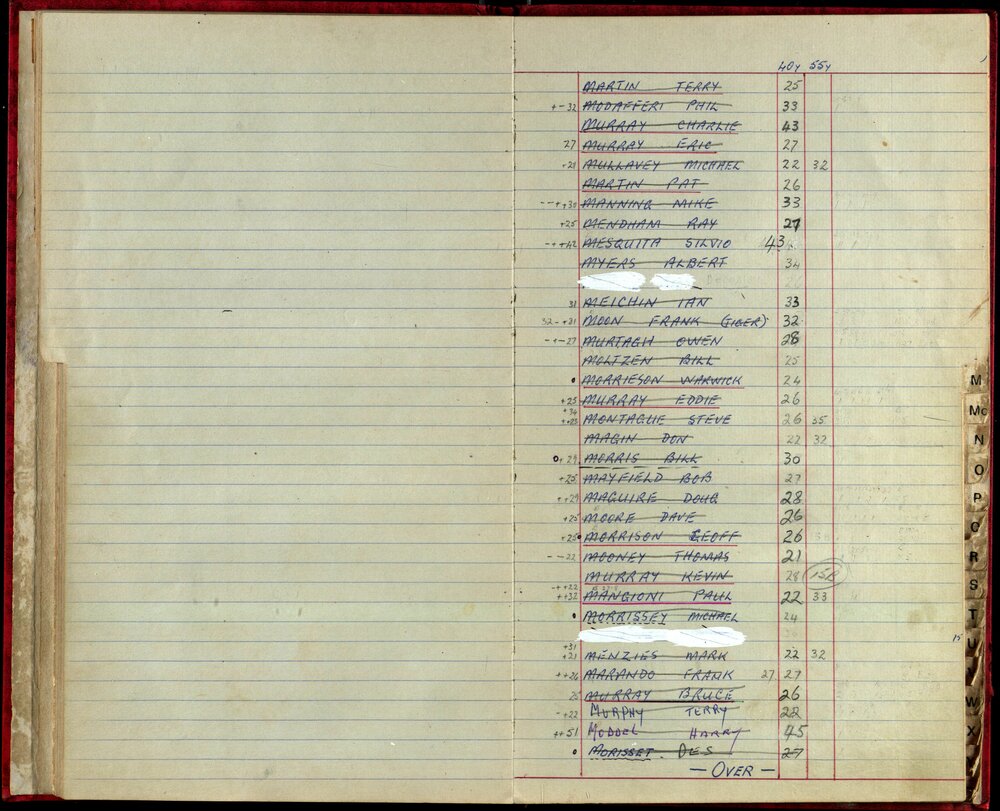 40y 55y
MARTIN TERRY 25
+-32 MODAFFERI PHIL 33
MURRAY CHARLIE 43
27 MURRAY ERIC 27
+29 MULLAVEY MICHAEL 22 32
MARTIN PAT 26
--++30 MANNING MIKE 33
+25 MENDHAM RAY 27
-++42 MESQUITA SILVIO 43
MYERS ALBERT 34
31 MEICHIN IAN 33
32-+31 MOON FRANK (TIGER) 32
-+-27 MURTAGH OWEN 28
MOLTZEN BILL 25
MORRIESON WARWICK 24
+25 MURRAY EDDIE 26
+34
++25 MONTAGUE STEVE 26 35
MAGIN DON 22 32
0+29 MORRIS BILL 30
+25 MAYFIELD BOB 27
++29 MAGUIRE DOUG 28
+25 MOORE DAVE 26
+25 MORRISON GEOFF 26
--22 MOONEY THOMAS 21
MURRAY KEVIN 28 15B
-++22
++32 MANGIONI PAUL 22 33
MORRISSEY MICHAEL 24
15
+31
+21 MENZIES MARK 22 32
++26 MARANDO FRANK 27 27
25 MURRAY BRUCE 26
-+22 MURPHY TERRY 22
++51 MODDEL HARRY 45
MORISSET DES 27
— OVER —
M
Mc
N
O
P
R
S
T
U
W
X